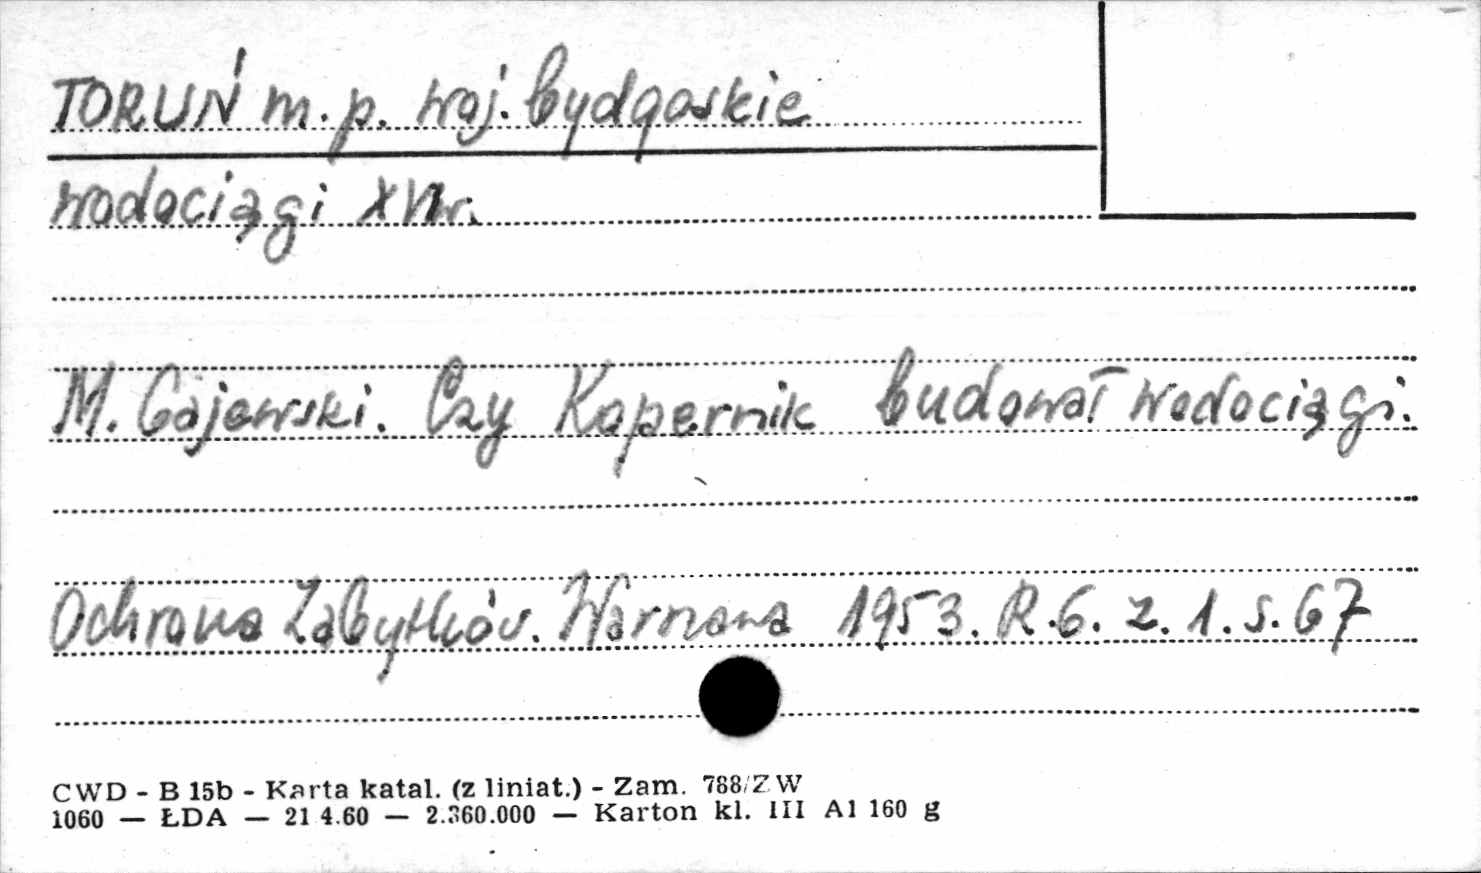 TORUŃ m.p. woj. bydgoskie
wodociągi XVI w.
M. Gajewski. Czy Kopernik budował wodociągi.
Ochrona Zabytków. Warszawa 1953. R.6. z. 1. s. 67
CWD - B 15b - Karta katal. (z liniat.) - Zam. 788/ZW
1060 — ŁDA — 21 4.60 — 2.360.000 — Karton kl. III A1 160 g